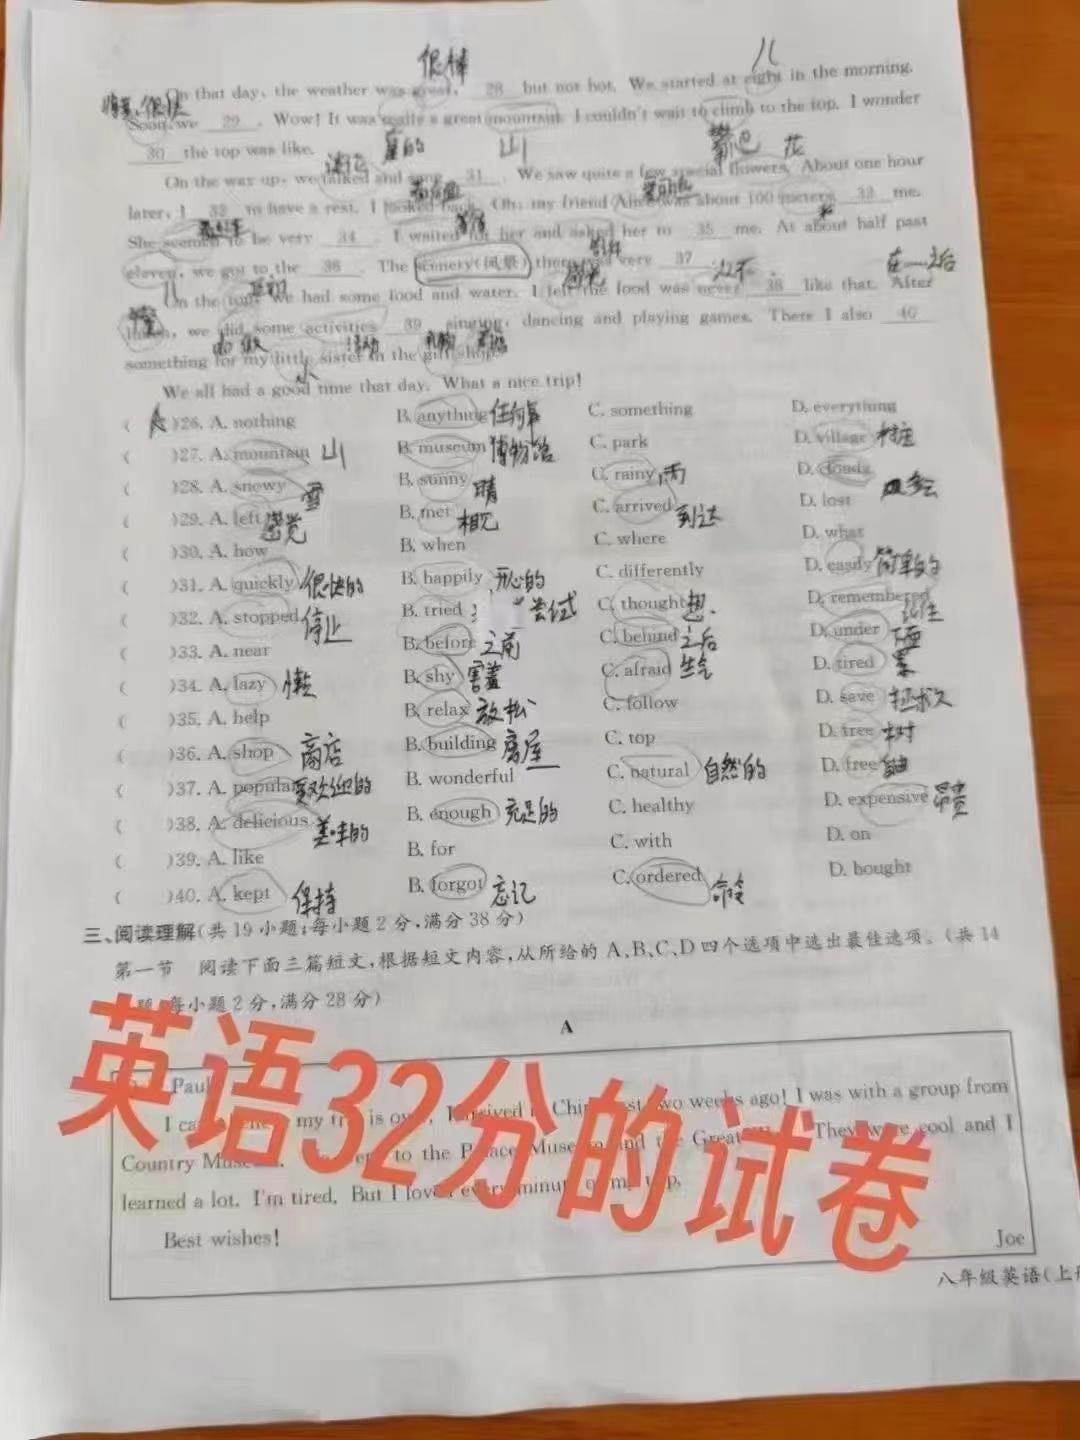 很棒
八
On that day, the weather was great, 28 but not hot. We started at eight in the morning.
Soon, we 29 . Wow! It was really a great mountain. I couldn't wait to climb to the top. I wonder
30 the top was like.
真的 山 攀巴 花
On the way up, we talked and sang 31 . We saw quite a few special flowers. About one hour
later, I 32 to have a rest. I looked back. Oh, my friend Alice was about 100 meters 33 me.
She seemed to be very 34 . I waited for her and asked her to 35 me. At about half past
eleven, we got to the 36 . The scenery(风景) there was very 37 .
在一之后
On the top, we had some food and water. I felt the food was never 38 like that. After
lunch, we did some activities 39 singing, dancing and playing games. There I also 40
活动 礼物
something for my little sister in the gift shop.
小
We all had a good time that day. What a nice trip!
( A )26. A. nothing B. anything 任何事 C. something D. everything
( )27. A. mountain 山 B. museum 博物馆 C. park D. village 村庄
( )28. A. snowy 雪 B. sunny 晴 C. rainy 雨 D. 多云
( )29. A. left 感觉 B. met 相见 C. arrived 到达 D. lost
( )30. A. how B. when C. where D. what
( )31. A. quickly 很快的 B. happily 开心的 C. differently D. easily 简单的
( )32. A. stopped 停止 B. tried 尝试 C. thought 想 D. remembered 记住
( )33. A. near B. before 之前 C. behind 之后 D. under 下面
( )34. A. lazy 懒 B. shy 害羞 C. afraid 生气 D. tired 累
( )35. A. help B. relax 放松 C. follow D. save 拯救
( )36. A. shop 商店 B. building 房屋 C. top D. tree 树
( )37. A. popular 受欢迎的 B. wonderful C. natural 自然的 D. free 自由
( )38. A. delicious 美味的 B. enough 充足的 C. healthy D. expensive 昂贵
( )39. A. like B. for C. with D. on
( )40. A. kept 保持 B. forgot 忘记 C. ordered 命令 D. bought
三、阅读理解(共19小题;每小题2分,满分38分)
第一节 阅读下面三篇短文,根据短文内容,从所给的A、B、C、D四个选项中选出最佳选项。(共14
题,每小题2分,满分28分)
A
英语32分的试卷
Paul
I my is arrived in two weeks ago! I was with a group from
Country to the Palace and the Great They were cool and I
learned a lot. I'm tired. But I love every minute of my trip.
Best wishes!
Joe
八年级英语(上册